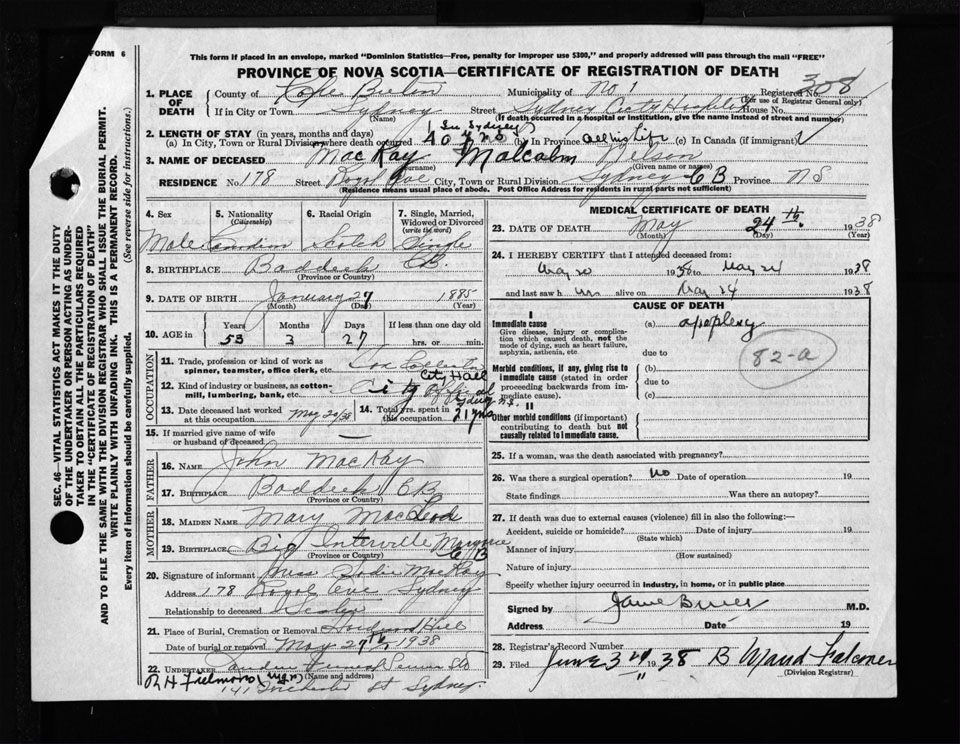 FORM 6
This form if placed in an envelope, marked "Dominion Statistics—Free, penalty for improper use $300," and properly addressed will pass through the mail "FREE"
PROVINCE OF NOVA SCOTIA—CERTIFICATE OF REGISTRATION OF DEATH
SEC. 46—VITAL STATISTICS ACT MAKES IT THE DUTY
OF THE UNDERTAKER OR PERSON ACTING AS UNDER-
TAKER TO OBTAIN ALL THE PARTICULARS REQUIRED
IN THE "CERTIFICATE OF REGISTRATION OF DEATH"
AND TO FILE THE SAME WITH THE DIVISION REGISTRAR WHO SHALL ISSUE THE BURIAL PERMIT.
WRITE PLAINLY WITH UNFADING INK. THIS IS A PERMANENT RECORD.
Every item of information should be carefully supplied. (See reverse side for instructions.)
1. PLACE OF DEATH County of Cape Breton Municipality of No 1 Registered No. 308
(For use of Registrar General only)
If in City or Town Sydney Street Sydney City Hospital House No.
(Name) (If death occurred in a hospital or institution, give the name instead of street and number)
2. LENGTH OF STAY (in years, months and days) In Sydney
(a) In City, Town or Rural Division where death occurred 40 yrs (b) In Province All his life (c) In Canada (if immigrant)
3. NAME OF DECEASED MacKay Malcolm Nelson
(Surname) (Given name or names)
RESIDENCE No. 178 Street Royal Ave City, Town or Rural Division Sydney C B Province N S
(Residence means usual place of abode. Post Office Address for residents in rural parts not sufficient)
4. Sex 5. Nationality (Citizenship) 6. Racial Origin 7. Single, Married, Widowed or Divorced (write the word)
Male Canadian Scotch Single
8. BIRTHPLACE Baddeck C.B.
(Province or Country)
9. DATE OF BIRTH January 27 1885
(Month) (Day) (Year)
10. AGE in Years Months Days If less than one day old
53 3 27 hrs. or min.
OCCUPATION
11. Trade, profession or kind of work as
spinner, teamster, office clerk, etc.
City Hall
12. Kind of industry or business, as cotton-
mill, lumbering, bank, etc. City Official
Sydney N.S.
13. Date deceased last worked at this occupation May 20/38 14. Total yrs. spent in this occupation 21 yrs
15. If married give name of wife
or husband of deceased —
FATHER
16. Name John MacKay
17. Birthplace Baddeck CB
(Province or Country)
MOTHER
18. Maiden Name Mary MacLeod
19. Birthplace Big Intervale Margaree C B
(Province or Country)
20. Signature of informant Miss Sadie MacKay
Address 178 Royal Ave Sydney
Relationship to deceased Sister
21. Place of Burial, Cremation or Removal Hardwood Hill
Date of burial or removal May 27th, 1938
22. Undertaker
(Name and address)
St Sydney.
MEDICAL CERTIFICATE OF DEATH
23. DATE OF DEATH May 24th. 1938
(Month) (Day) (Year)
24. I HEREBY CERTIFY that I attended deceased from:
May 20 1938 to May 24 1938
and last saw him alive on May 24 1938
CAUSE OF DEATH
I
Immediate cause (a) apoplexy
Give disease, injury or complica-
tion which caused death, not the
mode of dying, such as heart failure,
asphyxia, asthenia, etc. due to
82-a
Morbid conditions, if any, giving rise to (b)
immediate cause (stated in order due to
proceeding backwards from im-
mediate cause). (c)
II
Other morbid conditions (if important)
contributing to death but not
causally related to immediate cause.
25. If a woman, was the death associated with pregnancy?
26. Was there a surgical operation? No Date of operation 19
State findings Was there an autopsy?
27. If death was due to external causes (violence) fill in also the following:—
Accident, suicide or homicide? Date of injury 19
(State which)
Manner of injury
(How sustained)
Nature of injury
Specify whether injury occurred in industry, in home, or in public place
Signed by M.D.
Address Date 19
28. Registrar's Record Number
29. Filed June 3rd 1938 Falconer
(Division Registrar)